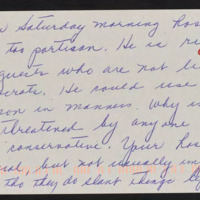 Saturday morning hos
too partison. He is r
guests who are not li
erate. He sould use
son in manners. Why is
threatened by anyone
conservative. Your hos
al, but not usually im
tho they do slant things